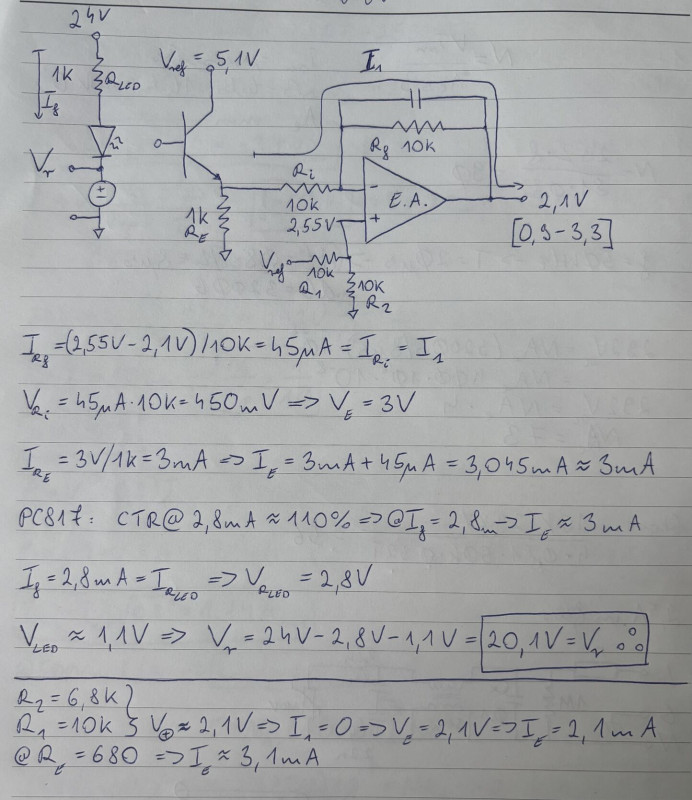 24V
1K
R_LED
I_f
V_r
V_ref = 5,1V
1K
R_E
I_1
R_f 10K
R_i
10K
2,55V
- E.A.
+
2,1V
[0,9-3,3]
V_ref
10K
R_1
10K
R_2
I_Rf = (2,55V - 2,1V)/10K = 45μA = I_Ri = I_1
V_Ri = 45μA·10K = 450mV => V_E = 3V
I_RE = 3V/1K = 3mA => I_E = 3mA + 45μA = 3,045mA ≈ 3mA
PC817: CTR@ 2,8mA ≈ 110% => @I_f = 2,8m → I_E ≈ 3mA
I_f = 2,8mA = I_RLED => V_RLED = 2,8V
V_LED ≈ 1,1V => V_r = 24V - 2,8V - 1,1V = 20,1V = V_r
R_2 = 6,8K }
R_1 = 10K } V_⊕ ≈ 2,1V => I_1 = 0 => V_E = 2,1V => I_E = 2,1mA
@ R_E = 680 => I_E ≈ 3,1mA